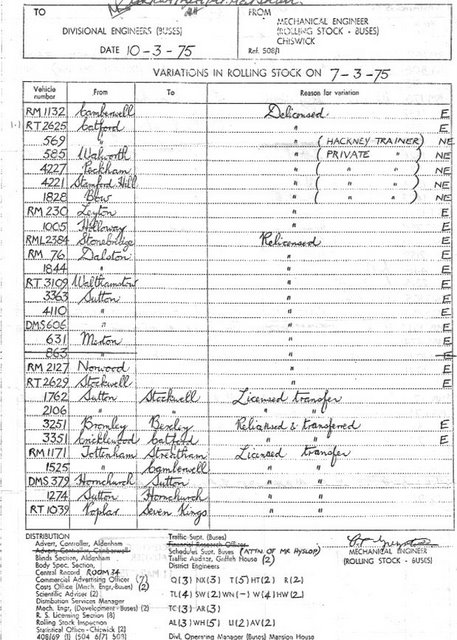 TO
FROM
DIVISIONAL ENGINEERS (BUSES)
MECHANICAL ENGINEER
(ROLLING STOCK - BUSES)
CHISWICK
DATE 10-3-75
Ref. 508/1
VARIATIONS IN ROLLING STOCK ON 7-3-75
Vehicle number From To Reason for variation
RM 1132 Camberwell Delicensed E
RT 2625 Catford " E
569 " " (HACKNEY TRAINER) NE
585 Walworth " (PRIVATE " ) NE
4227 Peckham " ( " " ) NE
4221 Stamford Hill " ( " " ) NE
1828 Bow " ( " " ) NE
RM 230 Leyton " E
1005 Holloway " E
RML 2384 Stonebridge Relicensed E
RM 76 Dalston " E
1844 " " E
RT 3109 Walthamstow " E
3363 Sutton " E
4110 " " E
DMS 606 " " E
631 Merton " E
863 " " E
RM 2127 Norwood " E
RT 2629 Stockwell " E
1762 Sutton Stockwell Licensed transfer
2106 " " " "
3251 Bromley Bexley Relicensed & transferred E
3351 Cricklewood Catford " " E
RM 1171 Tottenham Streatham Licensed transfer
1525 " Camberwell " "
DMS 379 Hornchurch Sutton " "
1274 Sutton Hornchurch " "
RT 1039 Poplar Seven Kings " "
DISTRIBUTION
Advert. Controller, Aldenham
Advert. Controller, Camberwell
Blinds Section, Aldenham
Body Spec. Section,
Central Record ROOM 34
Commercial Advertising Officer (7)
Costs Office (Mech. Engr. Buses) (2)
Scientific Adviser (2)
Distribution Services Manager
Mech. Engr. (Development - Buses) (2)
R. S. Licensing Section (8)
Rolling Stock Inspection
Statistical Officer - Chiswick (2)
408/69 (1) (504 6/7) 509
Traffic Supt. (Buses)
Financial Research Officer
Schedules Supt. Buses (ATTN OF MR HYSLOP)
Traffic Auditor, Griffith House (2)
District Engineers
Q (3) NX (3) T (5) HT (2) R (2)
TL (4) SW (2) WN (-) W (4) HW (2)
TC (3) AR (3)
AL (3) WH (5) U (2) AV (2)
Divl. Operating Manager (Buses) Mansion House
MECHANICAL ENGINEER
(ROLLING STOCK - BUSES)